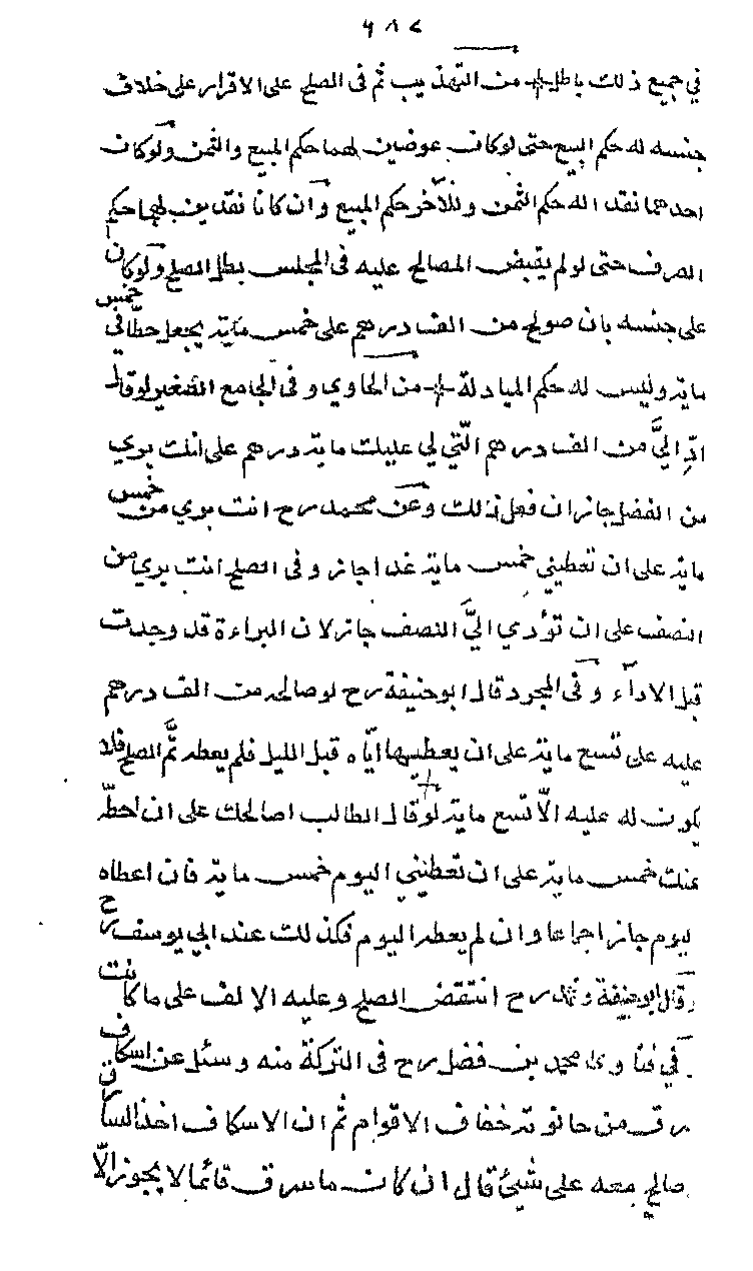 ٦٨٧
في جميع ذلك باطل من التهذيب ثم فى الصلح على الاقرار على خلاف
جنسه له حكم البيع حتى لوكان عوضين لهما حكم المبيع والثمن ولوكان
احدهما نقدا له حكم الثمن وللآخر حكم المبيع وان كانا نقدين لهما حكم
الصرف حتى لولم يقبض المصالح عليه فى المجلس بطل الصلح ولوكان
على جنسه بان صولح من الف درهم على خمس ماية يجعل حطّا في خمس
ماية وليس له حكم المبادلة من الحاوي وفى الجامع الصغير لوقال
ادّ اليَّ من الف درهم الّتي لي عليك ماية درهم على انك بري
من الفضل جاز ان فعل ذلك وعن محمد رح انت بري من خمس
ماية على ان تعطيني خمس ماية غدا جاز وفى الصلح انت بري من
النصف على ان تؤدي اليَّ النصف جاز لان البراءة قد وجدت
قبل الاداء وفى المجرد قال ابوحنيفة رح لوصالحه من الف درهم
عليه على تسع ماية على ان يعطيها ايّاه قبل الليل فلم يعطه ثمَّ الصلح فلا
يكون له عليه الّا تسع ماية لوقال الطالب اصالحك على ان احطّ
عنك خمس ماية على ان تعطيني اليوم خمس ماية فان اعطاه
ليوم جاز اجماعا وان لم يعطه اليوم فكذلك عند ابي يوسف رح
وقال ابوحنيفة ومحمد رح انتقض الصلح وعليه الالف على ما كانت
في فتاوى محمد بن فضل رح فى التركة منه وسئل عن اسكاف
سرق من حانوته خفاف الاقوام ثم ان الاسكاف اخذ السارق
صالح معه على شيئ قال ان كان ما سرق قائما لا يجوز الّا